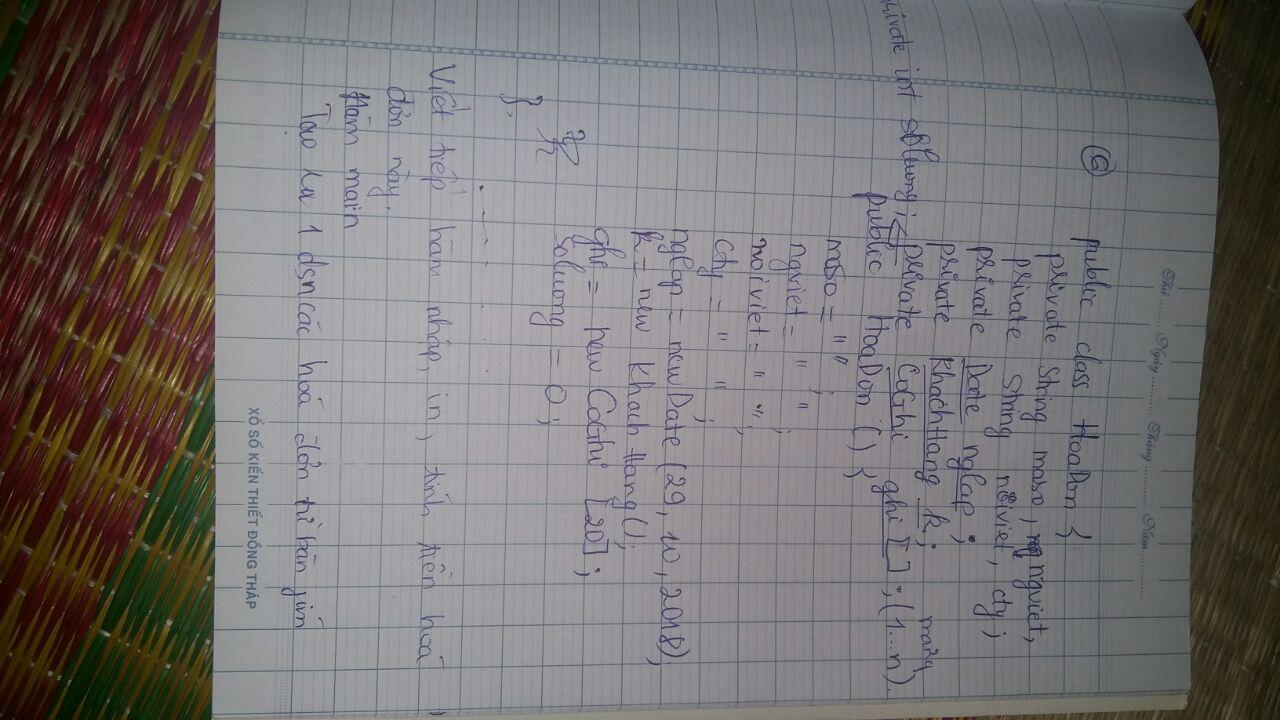 Thứ ........ Ngày ........... Tháng ............ Năm .............
⑥ public class HoaDon {
private String maso, ngviet,
private String nơiviet, cty;
private Date nglap;
private KhachHang k;
mảng
private int soluong; private CoGhi ghi []; (1...n).
public HoaDon () {
maso = " " ;
ngviet = " " ;
noiviet = " " ;
cty = " " ;
nglap = new Date (29, 10, 2018),
k = new Khach Hang();
ghi = new CoGhi [20] ;
soluong = 0 ;
}.
Viết tiếp hàm nhập, in, tính tiền hoá
đơn này.
Hàm main
Tạo ra 1 dsn các hoá đơn từ bàn
XỔ SỐ KIẾN THIẾT ĐỒNG THÁP